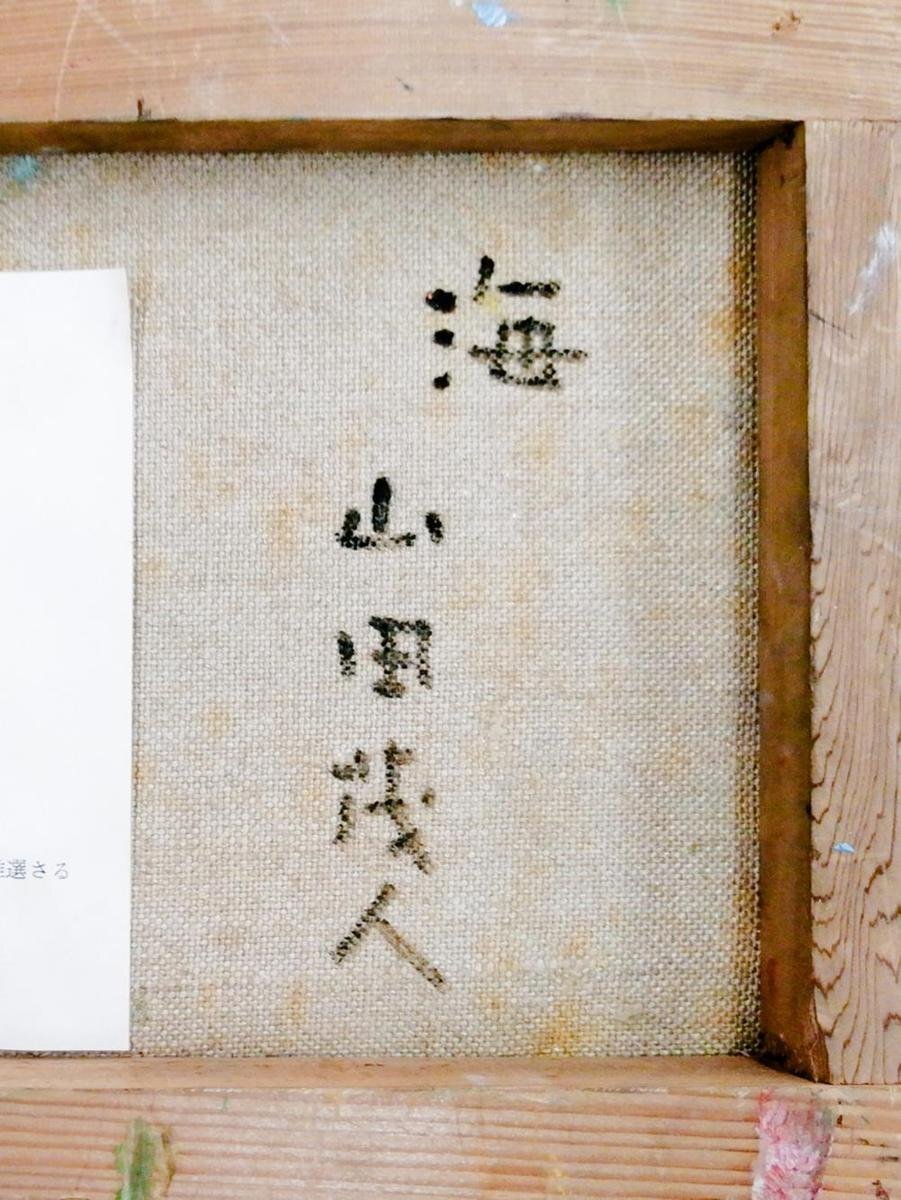 海
山田茂人
推選さる